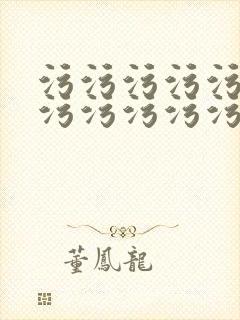 污污污污污
污污污污污
董鳳龍